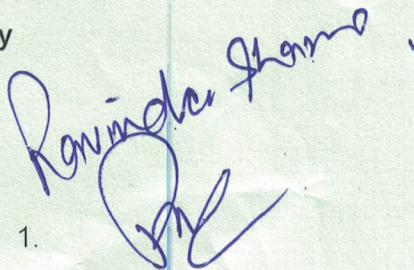 y
Ravinder Sharma
1.